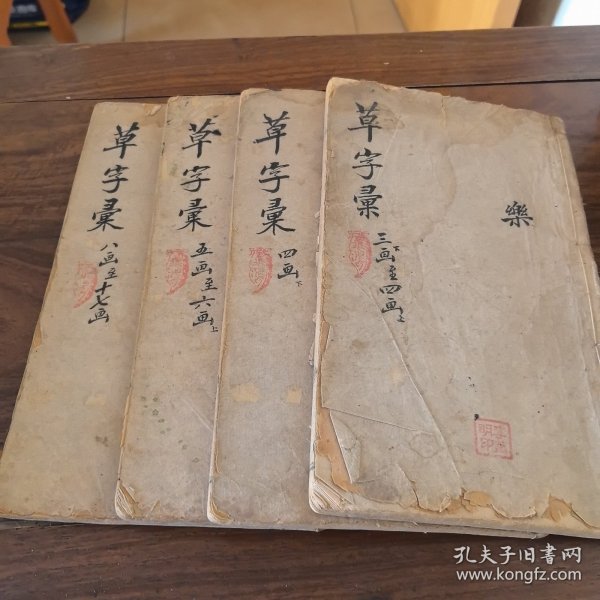 草字彙
八画至十七画
草字彙
五画至六画上
草字彙
四画下
草字彙
三画下至四画上
樂
孔夫子旧书网
www.kongfz.com